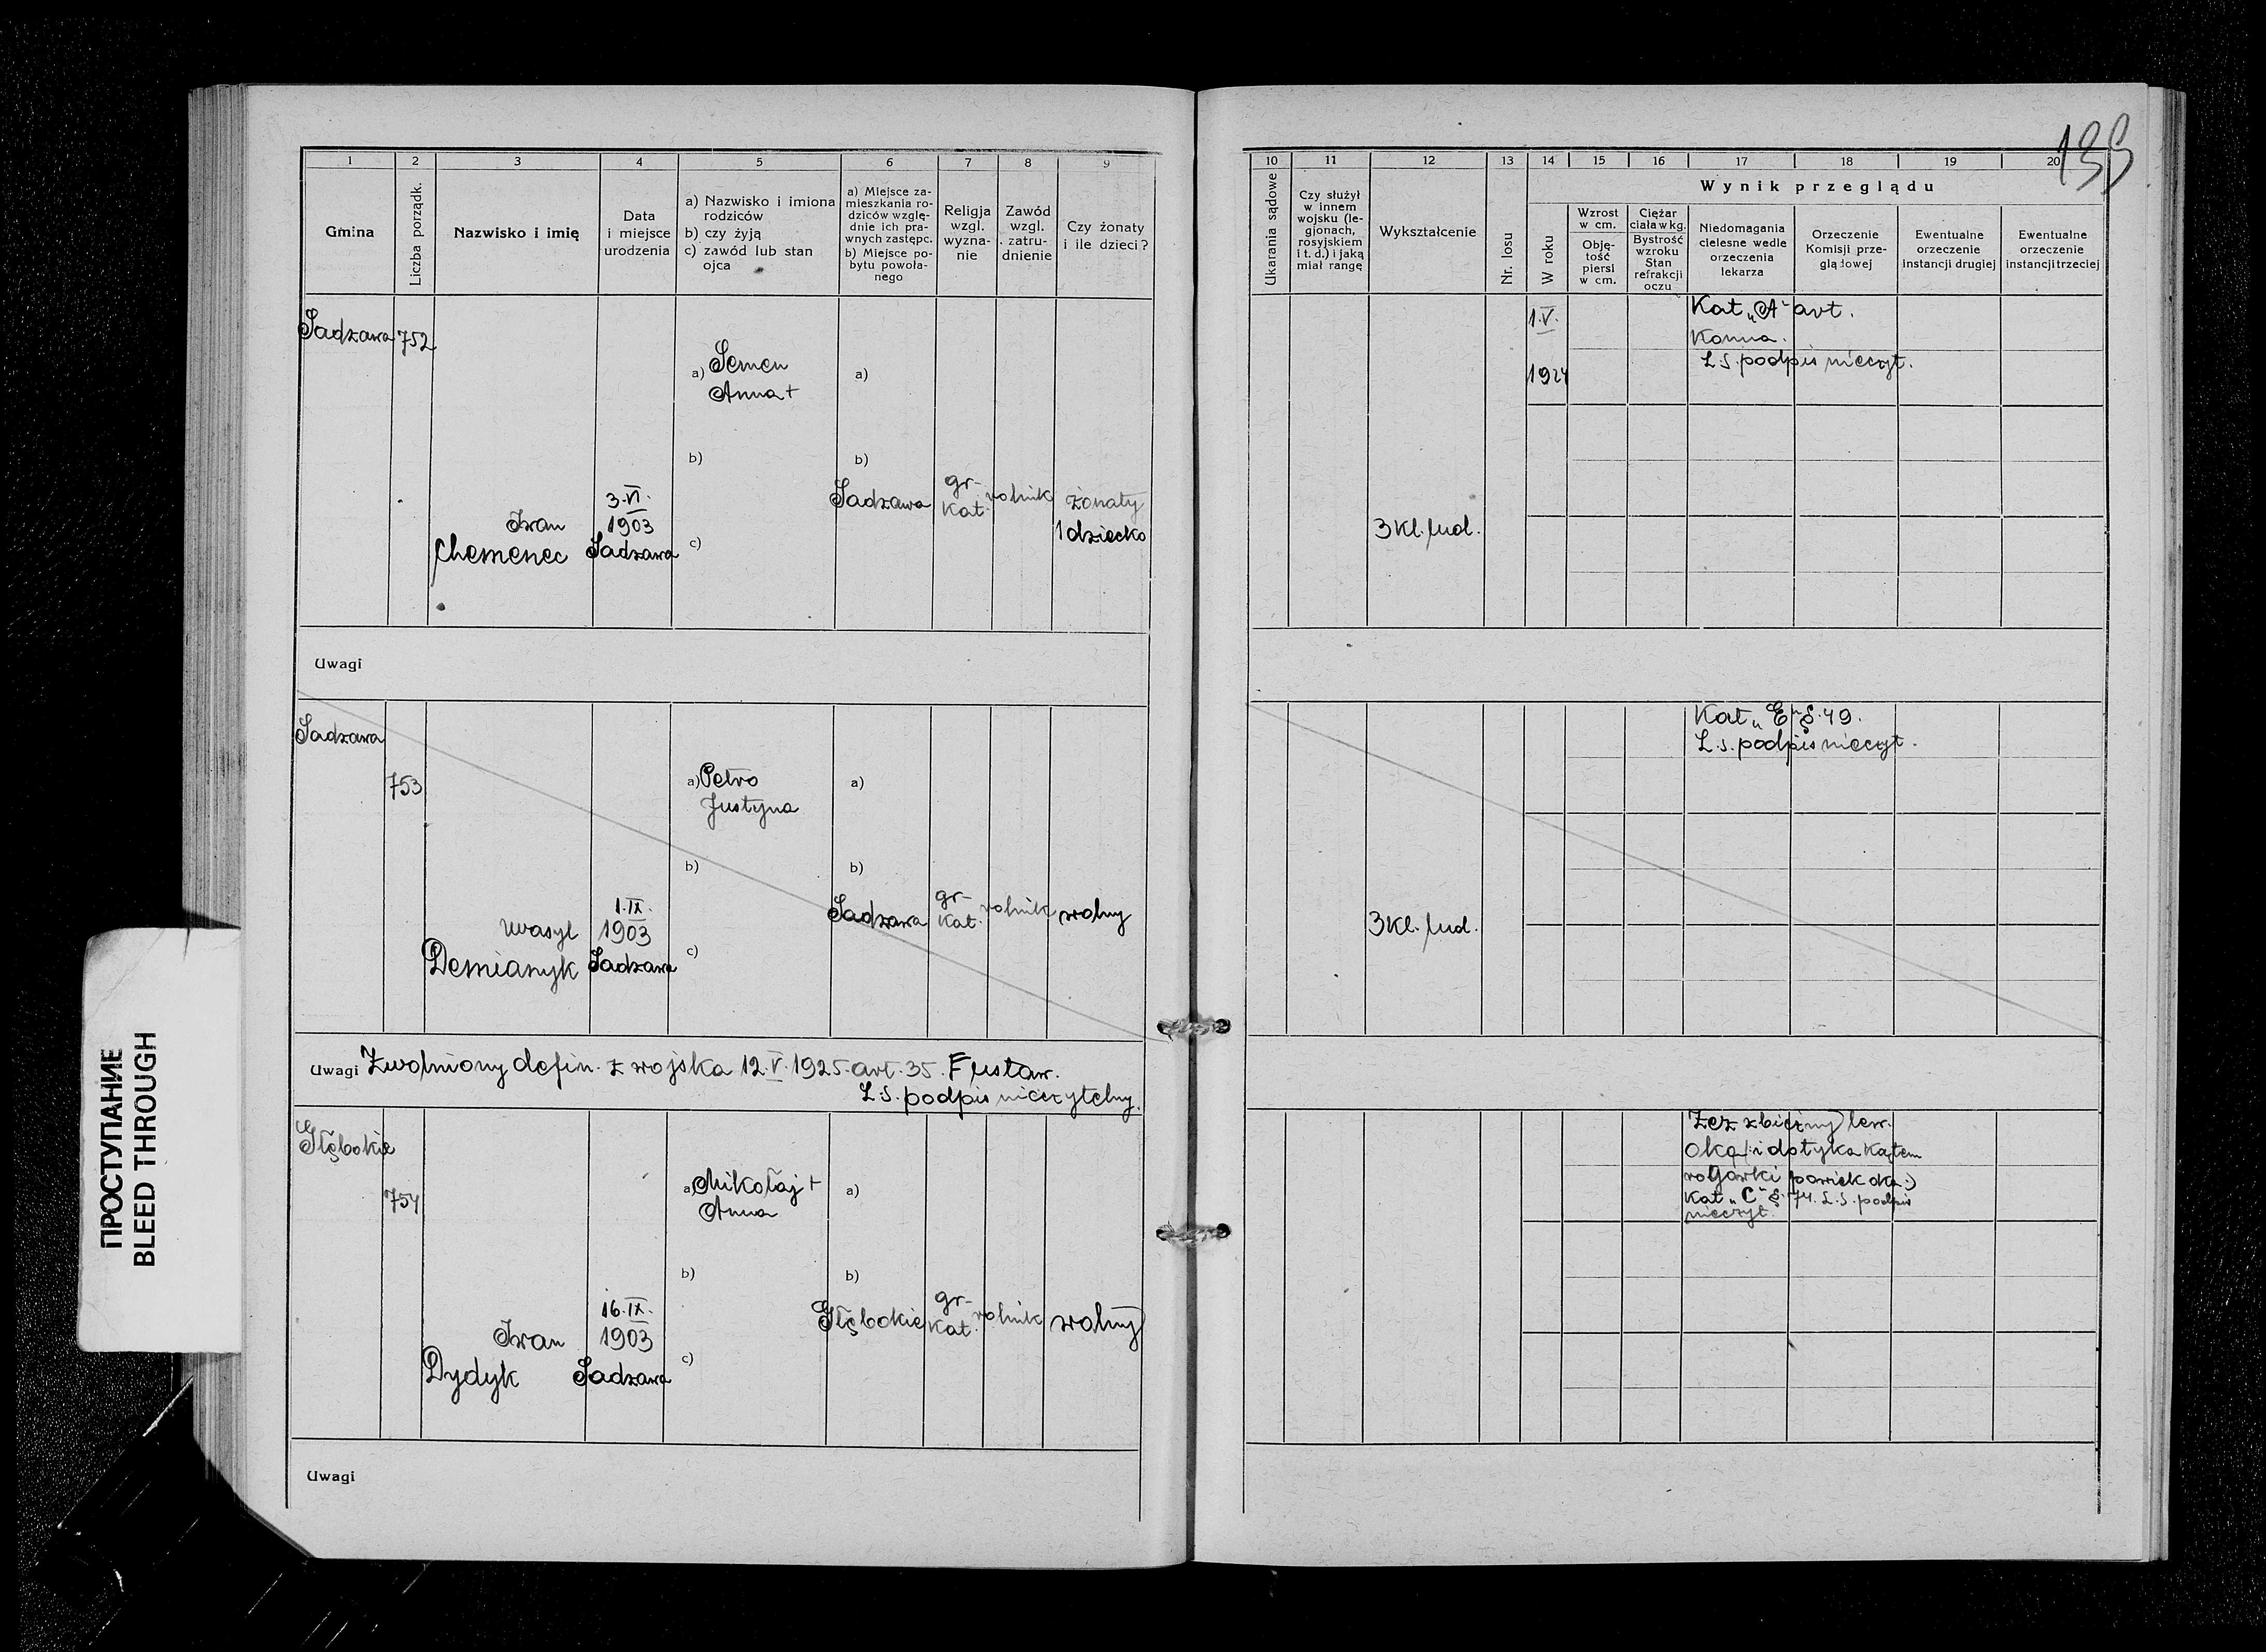 133
1 2 3 4 5 6 7 8 9
Gmina
Liczba porządk.
Nazwisko i imię
Data
i miejsce
urodzenia
a) Nazwisko i imiona
rodziców
b) czy żyją
c) zawód lub stan
ojca
a) Miejsce za-
mieszkania ro-
dziców wzglę-
dnie ich pra-
wnych zastępc.
b) Miejsce po-
bytu powoła-
nego
Religja
wzgl.
wyzna-
nie
Zawód
wzgl.
zatru-
dnienie
Czy żonaty
i ile dzieci?
10 11 12 13 14 15 16 17 18 19 20
Ukarania sądowe
Czy służył
w innem
wojsku (le-
gjonach,
rosyjskiem
i t. d.) i jaką
miał rangę
Wykształcenie
Nr. losu
Wynik przeglądu
W roku
Wzrost
w cm.
Obję-
tość
piersi
w cm.
Ciężar
ciała w kg.
Bystrość
wzroku
Stan
refrakcji
oczu
Niedomagania
cielesne wedle
orzeczenia
lekarza
Orzeczenie
Komisji prze-
glądowej
Ewentualne
orzeczenie
instancji drugiej
Ewentualne
orzeczenie
instancji trzeciej
Sadzawa 752
a) Semen
Anna +
a)
b)
b)
Sadzawa
gr-
kat.
rolnik
żonaty
1 dziecko
3.VI.
1903
Sadzawa
Iwan
Chemenec
c)
3 kl. lud.
1.V.
1924
Kat „A" art.
Konna.
L.S. podpis nieczyt.
Uwagi
Sadzawa
753
a) Petro
Justyna
a)
b)
b)
Sadzawa
gr-
kat.
rolnik
wolny
1.IX.
1903
Sadzawa
Wasyl
Demianyk
c)
3 kl. lud.
Kat „E" §.49.
L.S. podpis nieczyt.
Uwagi Zwolniony defin. z wojska 12.V.1925. art. 35. F ustaw.
L.S. podpis nieczytelny.
Głębokie
754
a) Mikołaj +
Anna
a)
b)
b)
Głębokie
gr-
kat.
rolnik
wolny
16.IX.
1903
Sadzawa
Iwan
Dydyk
c)
Zez zbieżny lew.
oka i dotyka kątem
rogówki powiek oka)
Kat „C" §.74. L.S. podpis
nieczyt.
Uwagi
ПРОСТУПАНИЕ
BLEED THROUGH